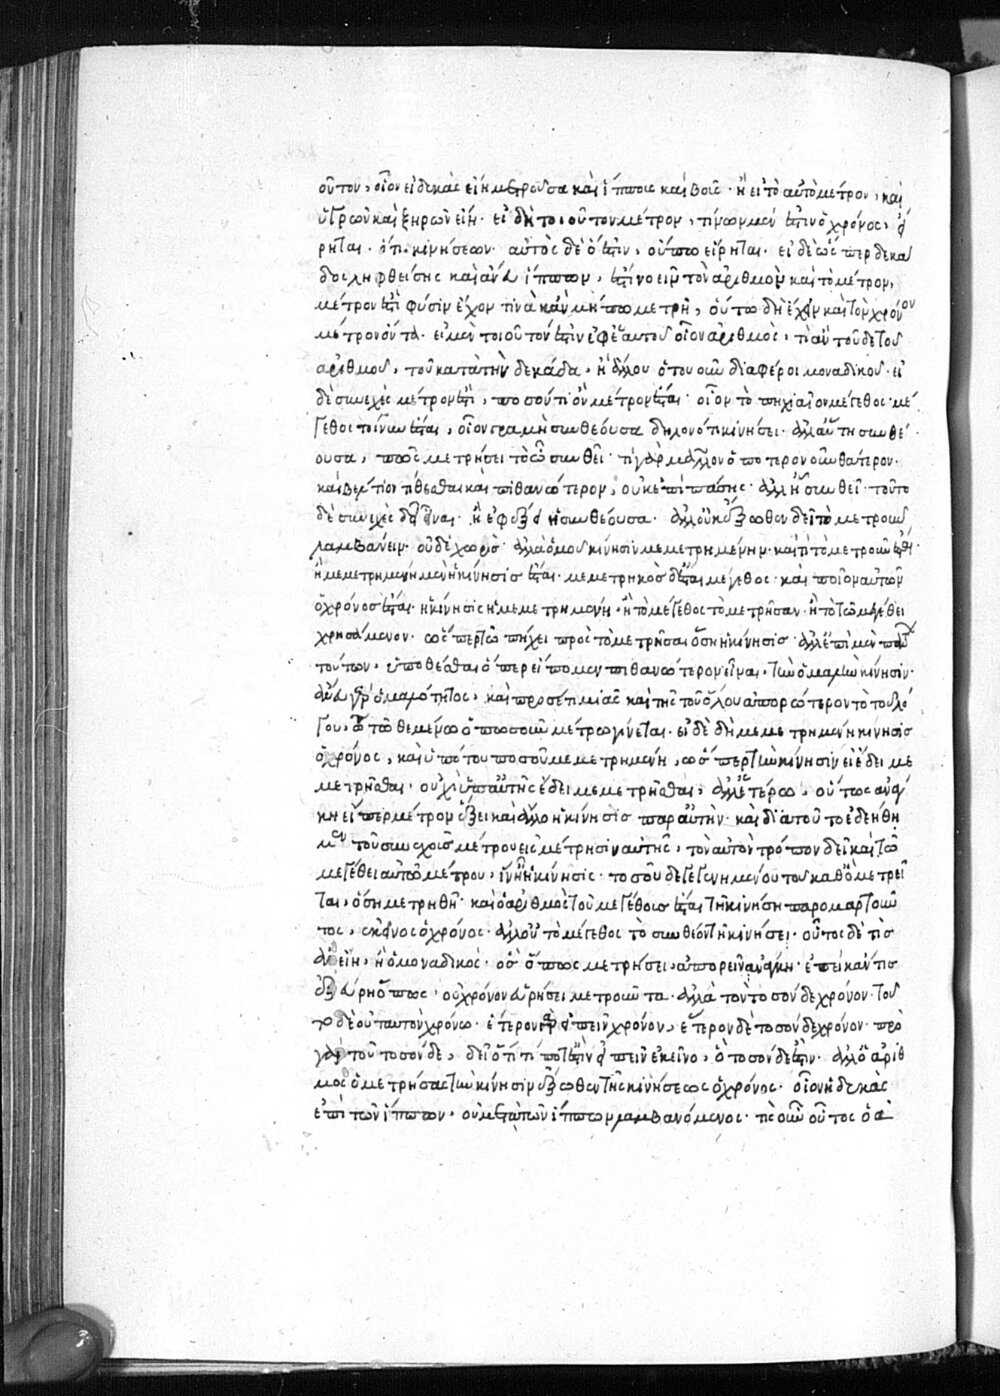 οὗτον, οἷον εἰ δεκὰς εἴη μετροῦσα καὶ ἵππους καὶ βοῦς· ἢ εἰ τὸ αὐτὸ μέτρον, καὶ
ὑγρῶν καὶ ξηρῶν εἴη· εἰ δὴ τοιοῦτον μέτρον, τίνων μέν ἐστιν ὁ χρόνος, εἴ
ρηται· ὅτι κινήσεων· αὐτὸς δὲ ὅ ἐστιν, οὔπω εἴρηται· εἰ δὲ ὥσπερ δεκά
δος ληφθείσης καὶ ἄνευ ἵππων, ἔστι νοεῖν τὸν ἀριθμὸν καὶ τὸ μέτρον,
μέτρον ἐστὶ φύσιν ἔχον τινὰ κἂν μήπω μετρῇ, οὕτω δὴ ἔχειν καὶ τὸν χρόνον
μέτρον ὄντα· εἰ μὲν τοιοῦτόν ἐστιν ἐφ' ἑαυτοῦ οἷον ἀριθμὸς, τί ἂν τοῦδε τοῦ
ἀριθμοῦ, τοῦ κατὰ τὴν δεκάδα, ἢ ἄλλου ὁτουοῦν διαφέροι μοναδικοῦ· εἰ
δὲ συνεχὲς μέτρον ἐστὶ, ποσόν τι ὂν μέτρον ἔσται· οἷον τὸ πηχυαῖον μέγεθος· μέ
γεθος τοίνυν ἔσται, οἷον γραμμὴ συνθέουσα δηλονότι κινήσει· ἀλλ' αὕτη συνθέ
ουσα, πῶς μετρήσει τὸ ᾧ συνθεῖ· τί γὰρ μᾶλλον ὁποτερονοῦν θάτερον·
καὶ βέλτιον τίθεσθαι καὶ πιθανώτερον, οὐκ ἐπὶ πάσης· ἀλλ' ᾗ συνθεῖ· τοῦτο
δὲ συνεχὲς δεῖ εἶναι· ἢ ἐφέξει ἡ συνθέουσα· ἀλλ' οὐκ ἔξωθεν δεῖ τὸ μετροῦν
λαμβάνειν· οὐδὲ χωρὶς· ἀλλὰ ὁμοῦ κίνησιν μεμετρημένην· καὶ τί τὸ μετροῦν ἔσται·
ἢ μεμετρημένη μὲν ἡ κίνησις ἔσται· μεμετρηκὸς δ' ἔσται μέγεθος· καὶ ποῖον αὐτῶν
ὁ χρόνος ἔσται· ἡ κίνησις ἡ μεμετρημένη· ἢ τὸ μέγεθος τὸ μετρῆσαν· ἢ τὸ τῷ μεγέθει
χρησάμενον· ὥσπερ τῷ πήχει πρὸς τὸ μετρῆσαι ὅση ἡ κίνησις· ἀλλ' ἐπὶ μὲν πάν
τούτων, ὑποθέσθαι ὅπερ εἴπομεν πιθανώτερον εἶναι, τὴν ὁμαλὴν κίνησιν·
ἄνευ γὰρ ὁμαλότητος, καὶ προσέτι μιᾶς καὶ τῆς τοῦ ὅλου ἀπορώτερον τὸ τοῦ λό
γου, τῷ θεμένῳ ὁπωσοῦν μέτρῳ γίνεται· εἰ δὲ δὴ μεμετρημένη κίνησις
ὁ χρόνος, καὶ ὑπὸ τοῦ ποσοῦ μεμετρημένη, ὥσπερ τὴν κίνησιν εἰ ἔδει με
μετρῆσθαι· οὐχ ὑπ' αὐτῆς ἔδει μεμετρῆσθαι, ἀλλ' ἑτέρῳ, οὕτως ἀνάγ
κη εἴπερ μέτρον ἕξει καὶ ἄλλο ἡ κίνησις παρ' αὐτὴν· καὶ διὰ τοῦτο ἐδεήθη
μεν τοῦ συνεχοῦς μέτρου εἰς μέτρησιν αὐτῆς, τὸν αὐτὸν τρόπον δεῖ καὶ τῷ
μεγέθει αὐτῷ μέτρου, ἵν' ᾖ ἡ κίνησις· τοσοῦδε γεγενημένου τοῦ καθὸ μετρεῖ
ται, ὅση μετρηθῇ· καὶ ὁ ἀριθμὸς τοῦ μεγέθους ἔσται τῇ κινήσει παρομαρτοῦν
τος, ἐκεῖνος ὁ χρόνος· ἀλλ' οὐ τὸ μέγεθος τὸ συνθέον τῇ κινήσει· οὗτος δὲ τίς
ἂν εἴη, ἢ ὁ μοναδικός· ὃς ὅπως μετρήσει, ἀπορεῖν ἀνάγκη· ἐπεὶ κἄν τις
ἐξεύρῃ ὅπως, οὐ χρόνον εὑρήσει μετροῦντα· ἀλλὰ τὸν τοσόνδε χρόνον· τοῦ
το δὲ οὐ ταυτὸν χρόνῳ· ἕτερον γὰρ εἰπεῖν χρόνον, ἕτερον δὲ τοσόνδε χρόνον· πρὸ
γὰρ τοῦ τοσόνδε, δεῖ ὅ τί ποτ' ἐστὶν εἰπεῖν ἐκεῖνο, ὃ τοσόνδε ἐστίν· ἀλλ' ὁ ἀριθ
μὸς ὁ μετρήσας τὴν κίνησιν ἔξωθεν τῆς κινήσεως ὁ χρόνος· οἷον ἡ δεκὰς
ἐπὶ τῶν ἵππων· οὐ μετὰ τῶν ἵππων λαμβανόμενος· τίς οὖν οὗτος ὁ ἀ